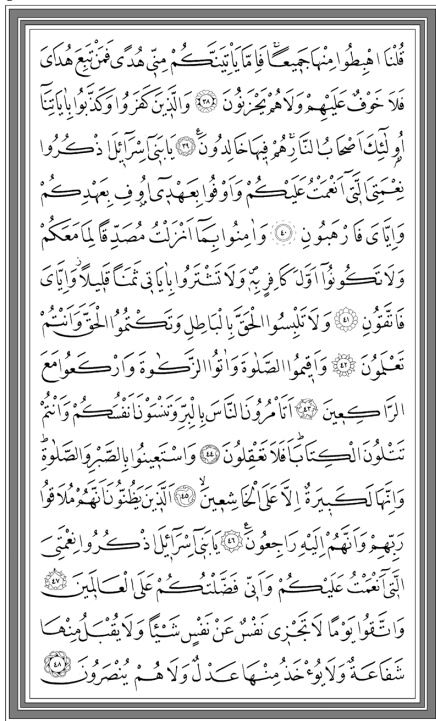 قُلْنَا اهْبِطُوا مِنْهَا جَمِيعًاۚ فَاِمَّا يَأْتِيَنَّكُمْ مِنِّي هُدًى فَمَنْ تَبِعَ هُدَايَ
فَلَا خَوْفٌ عَلَيْهِمْ وَلَا هُمْ يَحْزَنُونَ ﴿٣٨﴾ وَالَّذِينَ كَفَرُوا وَكَذَّبُوا بِاٰيَاتِنَٓا
اُو۬لٰٓئِكَ اَصْحَابُ النَّارِۚ هُمْ فِيهَا خَالِدُونَ۟ ﴿٣٩﴾ يَا بَنِٓي اِسْرَٓائِلَ اذْكُرُوا
نِعْمَتِيَ الَّتِٓي اَنْعَمْتُ عَلَيْكُمْ وَاَوْفُوا بِعَهْدِٓي اُو۫فِ بِعَهْدِكُمْ
وَاِيَّايَ فَارْهَبُونِ ﴿٤٠﴾ وَاٰمِنُوا بِمَٓا اَنْزَلْتُ مُصَدِّقًا لِمَا مَعَكُمْ
وَلَا تَكُونُٓوا اَوَّلَ كَافِرٍ بِهِۖ وَلَا تَشْتَرُوا بِاٰيَاتِي ثَمَنًا قَلِيلًاۘ وَاِيَّايَ
فَاتَّقُونِ ﴿٤١﴾ وَلَا تَلْبِسُوا الْحَقَّ بِالْبَاطِلِ وَتَكْتُمُوا الْحَقَّ وَاَنْتُمْ
تَعْلَمُونَ ﴿٤٢﴾ وَاَقِيمُوا الصَّلٰوةَ وَاٰتُوا الزَّكٰوةَ وَارْكَعُوا مَعَ
الرَّاكِعِينَ ﴿٤٣﴾ اَتَأْمُرُونَ النَّاسَ بِالْبِرِّ وَتَنْسَوْنَ اَنْفُسَكُمْ وَاَنْتُمْ
تَتْلُونَ الْكِتَابَۜ اَفَلَا تَعْقِلُونَ ﴿٤٤﴾ وَاسْتَعِينُوا بِالصَّبْرِ وَالصَّلٰوةِۜ
وَاِنَّهَا لَكَبِيرَةٌ اِلَّا عَلَى الْخَاشِعِينَۙ ﴿٤٥﴾ اَلَّذِينَ يَظُنُّونَ اَنَّهُمْ مُلَاقُوا
رَبِّهِمْ وَاَنَّهُمْ اِلَيْهِ رَاجِعُونَ۟ ﴿٤٦﴾ يَا بَنِٓي اِسْرَٓائِلَ اذْكُرُوا نِعْمَتِيَ
الَّتِٓي اَنْعَمْتُ عَلَيْكُمْ وَاَنِّي فَضَّلْتُكُمْ عَلَى الْعَالَمِينَ ﴿٤٧﴾
وَاتَّقُوا يَوْمًا لَا تَجْزِي نَفْسٌ عَنْ نَفْسٍ شَيْـًٔا وَلَا يُقْبَلُ مِنْهَا
شَفَاعَةٌ وَلَا يُؤْخَذُ مِنْهَا عَدْلٌ وَلَا هُمْ يُنْصَرُونَ ﴿٤٨﴾